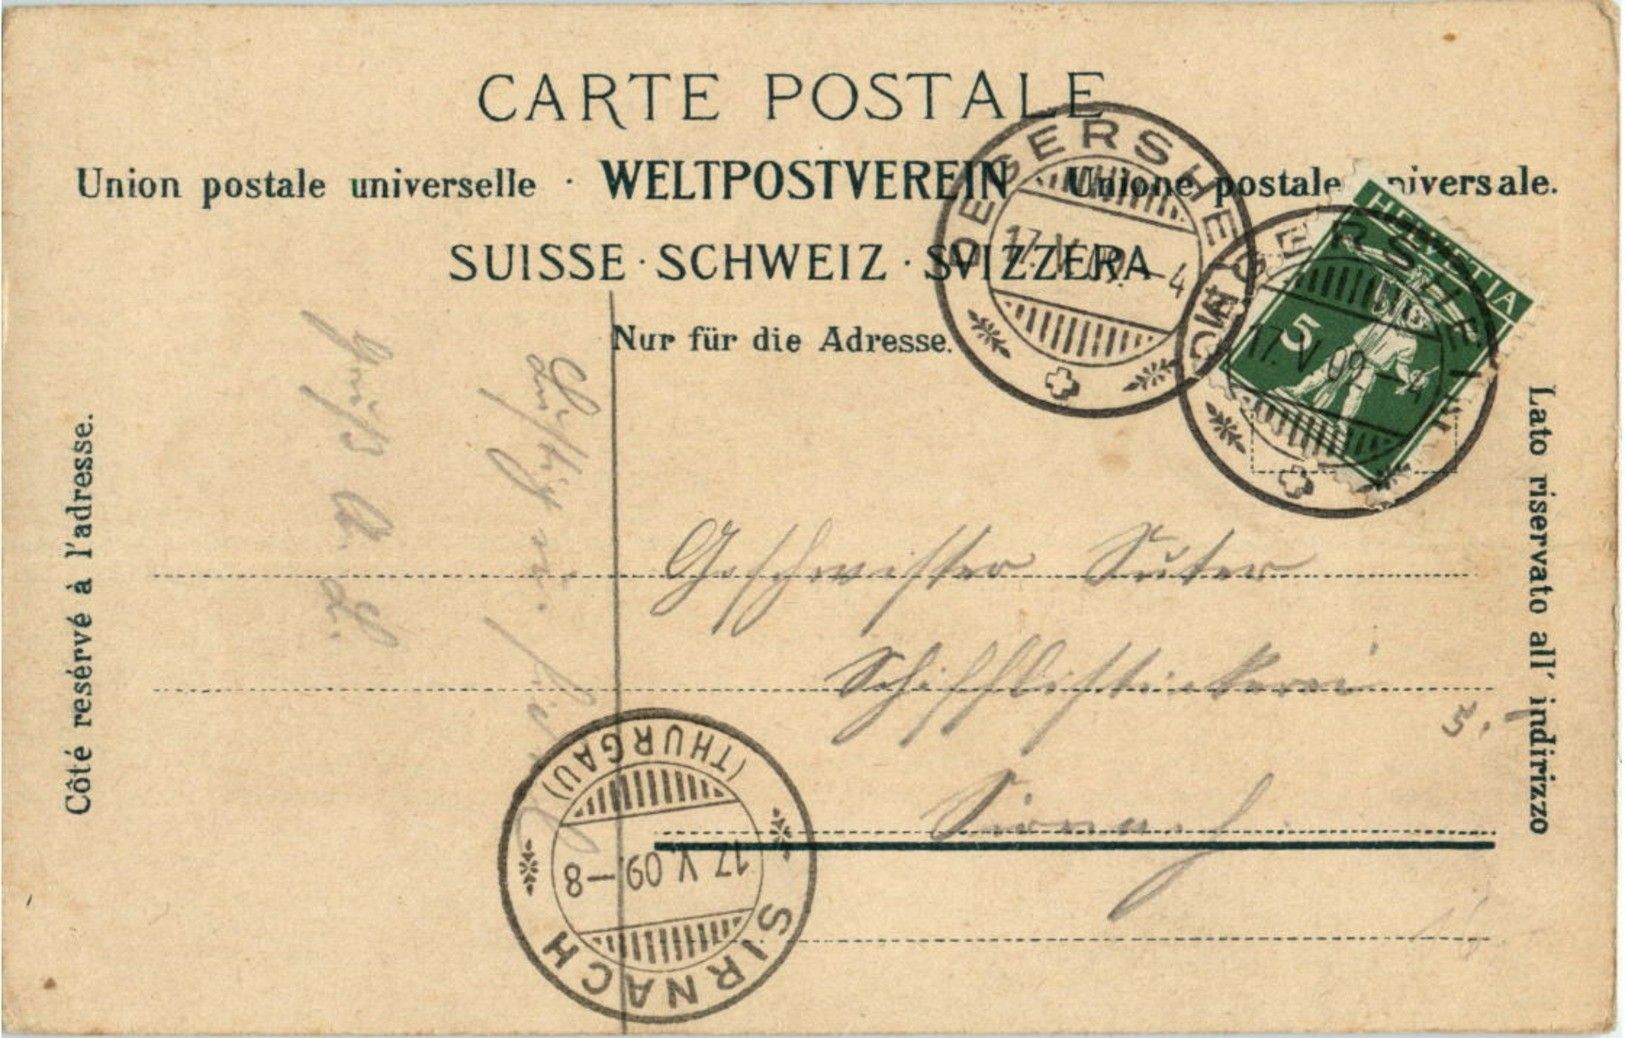 CARTE POSTALE
Union postale universelle · WELTPOSTVEREIN · Unione postale universale.
SUISSE · SCHWEIZ · SVIZZERA
Nur für die Adresse.
Côté resérvé à l'adresse.
Lato riservato all' indirizzo
DEGERSHEIM
17. V. 09. – 4
DEGERSHEIM
17. V. 09 – 4
HELVETIA
5
Geschwister Suter
Schifflistickerei
Sirnach
5.
Lustig
Gruß A. L.
SIRNACH
(THURGAU)
17. V. 09. – 8